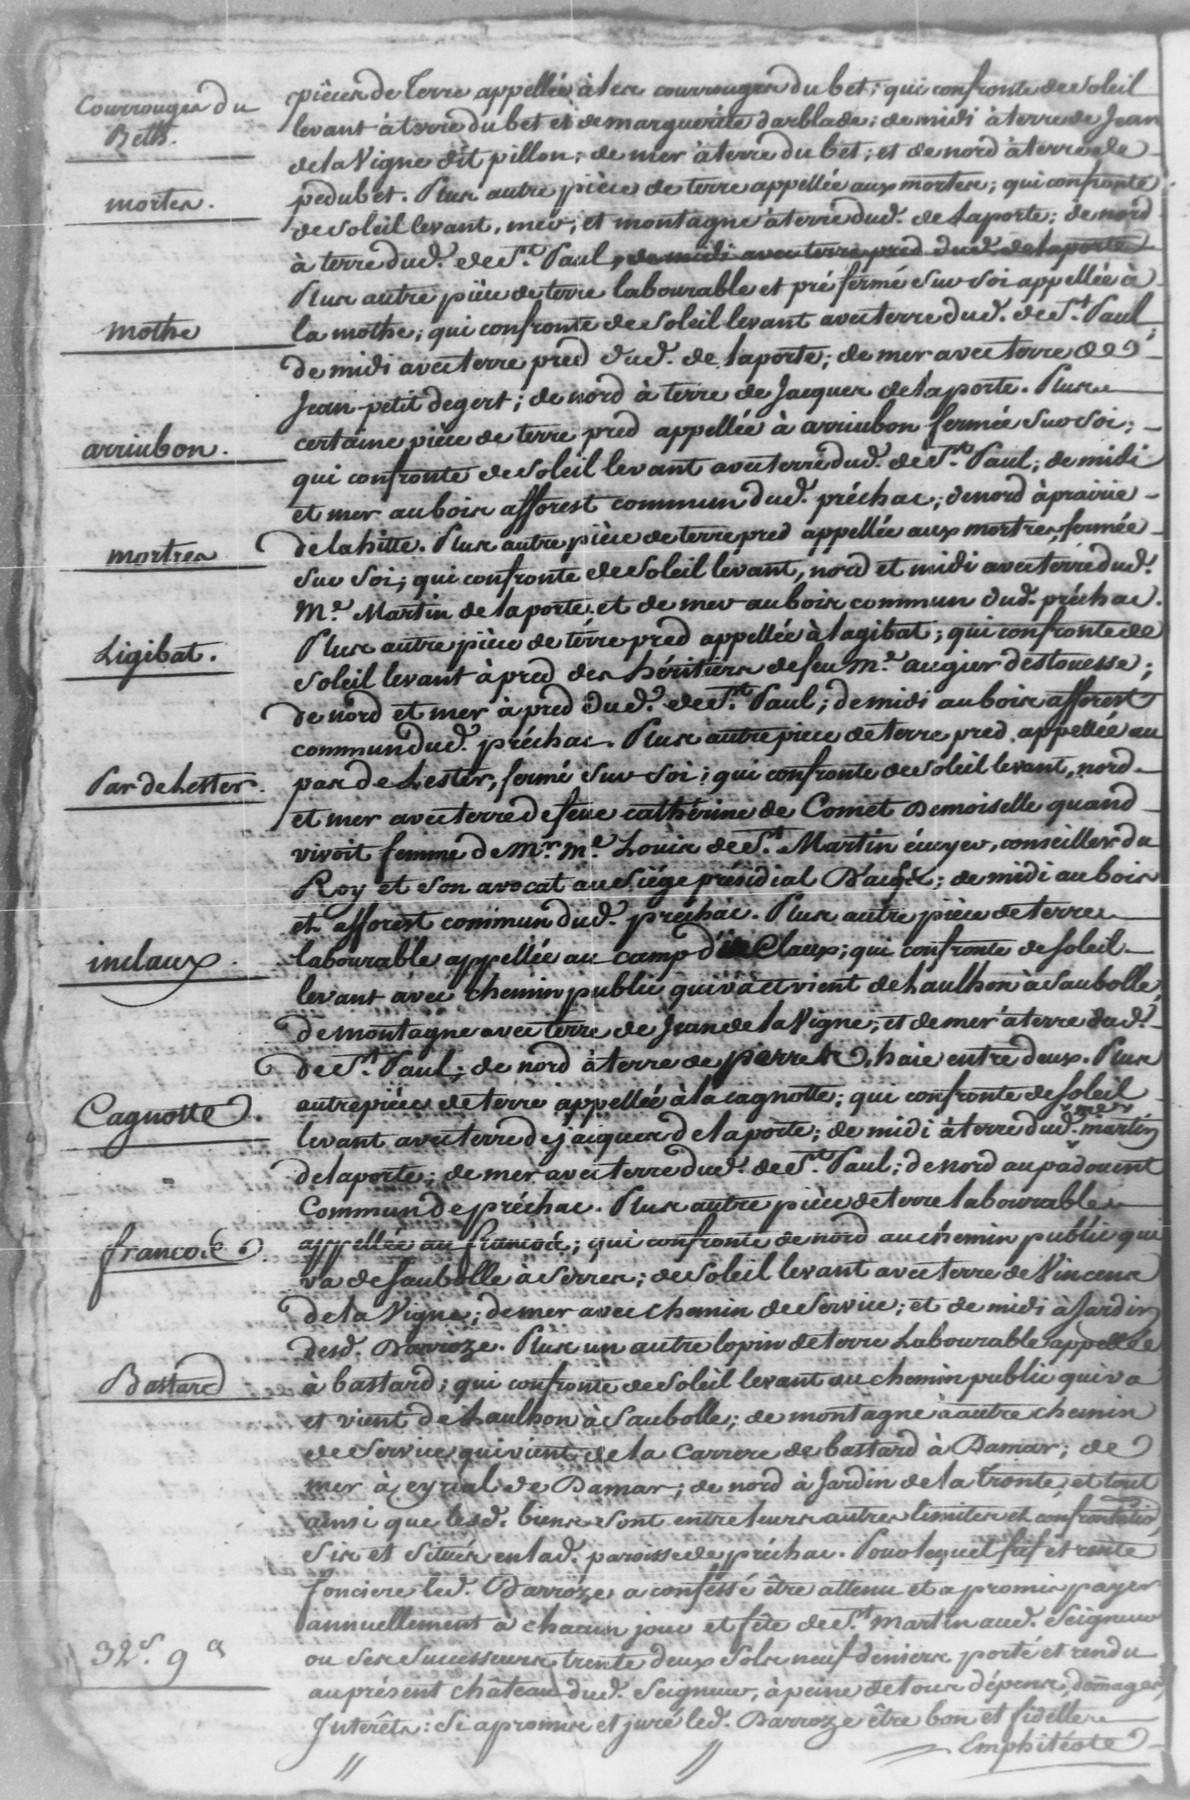 Courrouges du
Beth.
pièces de Terre appellée à les courrouges du bet; qui confronte de soleil
levant à terre du bet et de marguerite darblade; de midi à terre de Jean
de la Vigne dit pillon; de mer à terre du bet; et de nord à terre de
mortes.
pedubet. Plus autre pièce de terre appellée aux mortes; qui confronte
de soleil levant, mer, et montagne à terre dud. de Laporte; de nord
à terre dud. de St. Paul, de midi avec terre pred dud. de laporte
Plus autre pièce de terre labourable et pré fermé sur soi appellée à
mothe
la mothe; qui confronte de soleil levant avec terre dud. de St. Paul;
de midi avec terre pred dud. de laporte; de mer avec terre de
Jean petit degert; de nord à terre de Jacques de laporte. Plus
arriubon.
certaine pièce de terre pred appellée à arriubon fermée sur soi;
qui confronte de soleil levant avec terre dud. de St. Paul; de midi
et mer au bois afforest commun dud. préchac; de nord à prairie
mortres
de lahitte. Plus autre pièce de terre pred appellée aux mortres, fermée
sur soi; qui confronte de soleil levant, nord et midi avec terre dud.
Me. Martin de laporte, et de mer au bois commun dud. préchac.
Ligibat.
Plus autre pièce de terre pred appellée à lagibat; qui confronte de
soleil levant à pred des héritiers de feu Me. augier destouesse;
de nord et mer à pred dud. de St. Paul; de midi au bois afforest
commun dud. préchac. Plus autre pièce de terre pred appellée au
Par de Lester.
par de Lester, fermé sur soi; qui confronte de soleil levant, nord
et mer avec terre de feue catherine de Comet Demoiselle quand
vivoit femme de Mr. Me. Louis de St. Martin écuyer, conseiller du
Roy et son avocat au siége présidial D'acqs; de midi au bois
et afforest commun dud. préchac. Plus autre pièce de terre
inclaux.
labourable appellée au camp d'in Claux; qui confronte de soleil
levant avec chemin public qui va et vient de haulhon à Saubolle,
de montagne avec terre de Jean de la Vigne; et de mer à terre dud.
de St. Paul; de nord à terre de pierre, haie entre deux. Plus
Cagnotte.
autre pièce de terre appellée à la cagnotte; qui confronte de soleil
levant avec terre de jacques de laporte; de midi à terre dud. me martin
de laporte; de mer avec terre dud. de St. Paul; de nord au padouent
Commun de préchac. Plus autre pièce de terre labourable
francoisé.
appellée au francoisé; qui confronte de nord au chemin public que
va de Saubolle à Serres; de soleil levant avec terre de Vincens
de la Vigne; de mer avec chemin de service; et de midi à Jardin
dud. Darroze. Plus un autre lopin de terre Labourable appellée
Bastard
à bastard; qui confronte de soleil levant au chemin public qui va
et vient de haulhon à Saubolle; de montagne à autre chemin
de service qui vient de la Carrere de bastard à Damar; de
mer à eyrial de Damar; de nord à Jardin de la tronte et tout
ainsi que lesd. biens sont entre leurs autres limites et confrontatio,
sis et situés en lad. paroisse de préchac. Pour lequel fief et rente
fonciere led. Darroze a conféssé être attenu et a promis payer
annuellement à chacun jour et fête de St. Martin aud. Seigneur
32s. 9d
ou ses successeurs trente deux sols neuf deniers porté et rendu
au présent château dud. Seigneur, à peine de tous dépens, domages,
Interêts: Si a promis et juré led. Darroze être bon et fidelle
Emphitéote